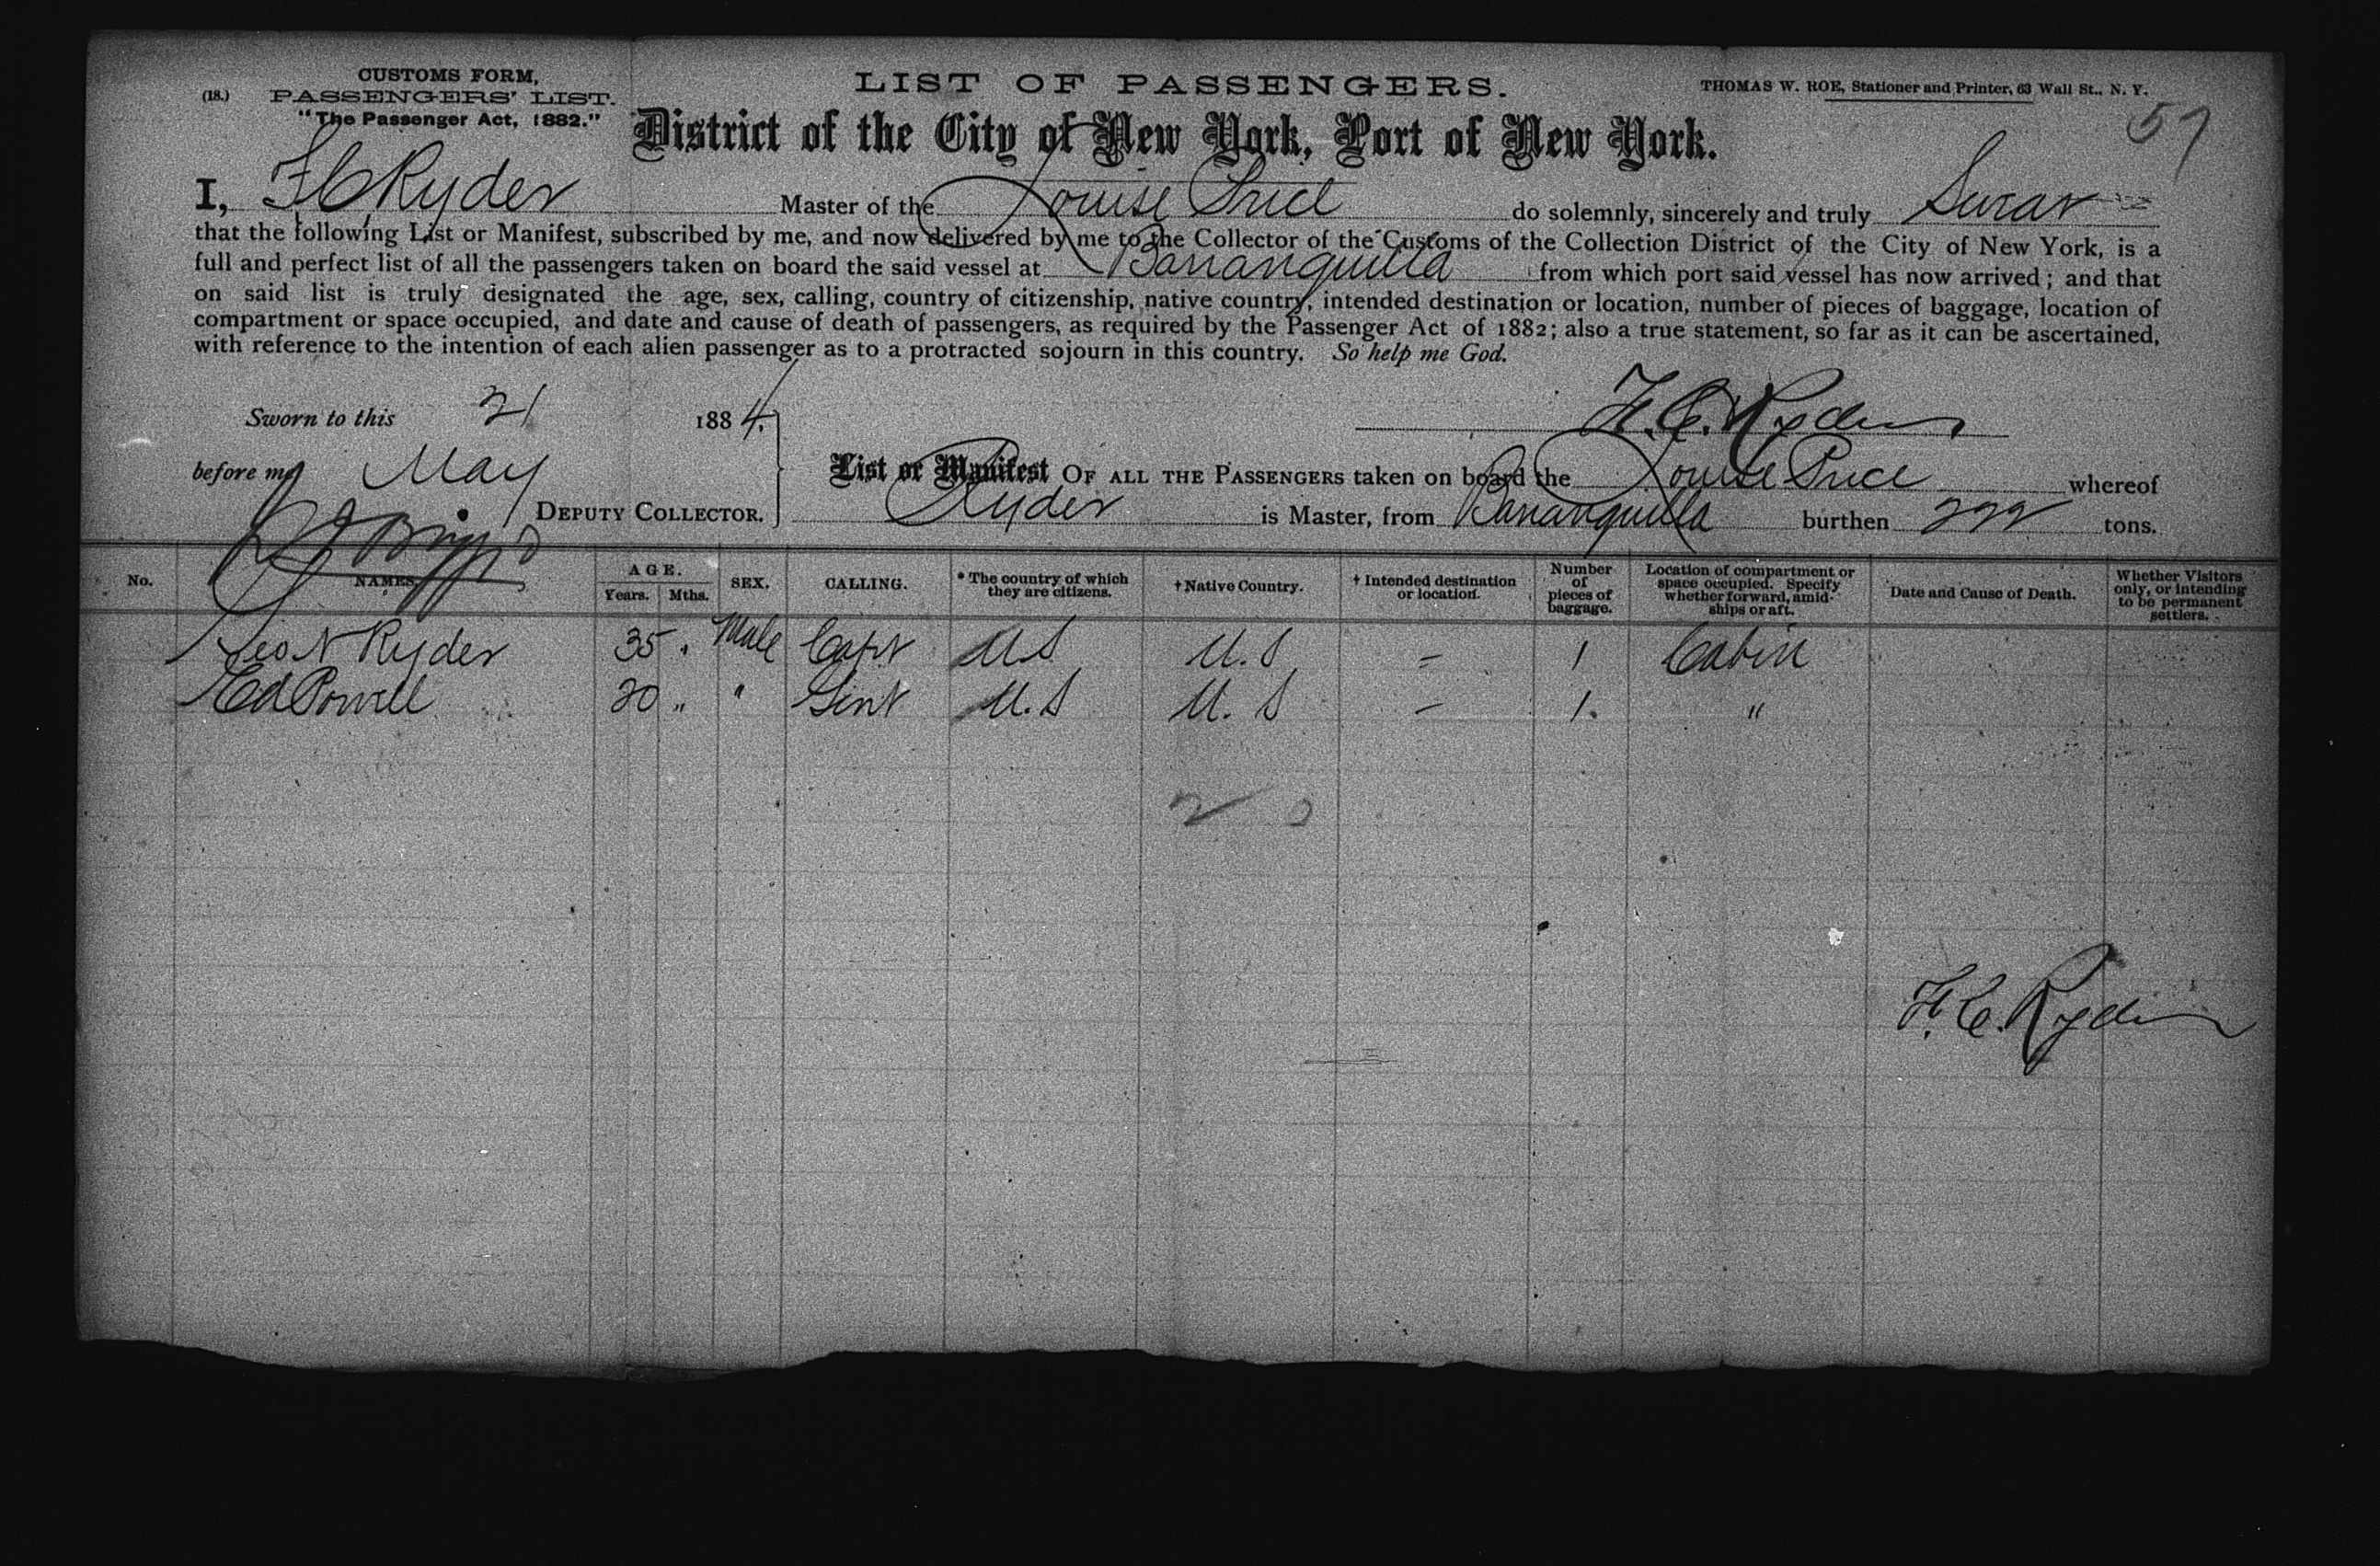 CUSTOMS FORM,
(18.) PASSENGERS' LIST.
"The Passenger Act, 1882."
LIST OF PASSENGERS.
THOMAS W. ROE, Stationer and Printer, 63 Wall St., N. Y.
57
District of the City of New York, Port of New York.
I, F C Ryder Master of the Louise Price do solemnly, sincerely and truly Swear
that the following List or Manifest, subscribed by me, and now delivered by me to the Collector of the Customs of the Collection District of the City of New York, is a
full and perfect list of all the passengers taken on board the said vessel at Barranquilla from which port said vessel has now arrived; and that
on said list is truly designated the age, sex, calling, country of citizenship, native country, intended destination or location, number of pieces of baggage, location of
compartment or space occupied, and date and cause of death of passengers, as required by the Passenger Act of 1882; also a true statement, so far as it can be ascertained,
with reference to the intention of each alien passenger as to a protracted sojourn in this country. So help me God.
Sworn to this 21 1884.
F. C. Ryder
before me May
List or Manifest OF ALL THE PASSENGERS taken on board the Louise Price whereof
DEPUTY COLLECTOR.
Ryder is Master, from Barranquilla burthen tons.
No. NAMES. AGE. Years. Mths. SEX. CALLING. * The country of which they are citizens. † Native Country. † Intended destination or location. Number of pieces of baggage. Location of compartment or space occupied. Specify whether forward, amidships or aft. Date and Cause of Death. Whether Visitors only, or intending to be permanent settlers.
Geo N Ryder 35 " Male Capt U.S U.S = 1 Cabin
Ed Powell 20 " " Gent U.S U.S - 1. "
2
F. C. Ryder